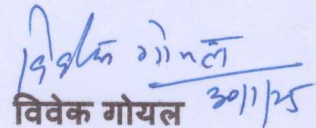 विवेक गोयल
30/1/25
विवेक गोयल